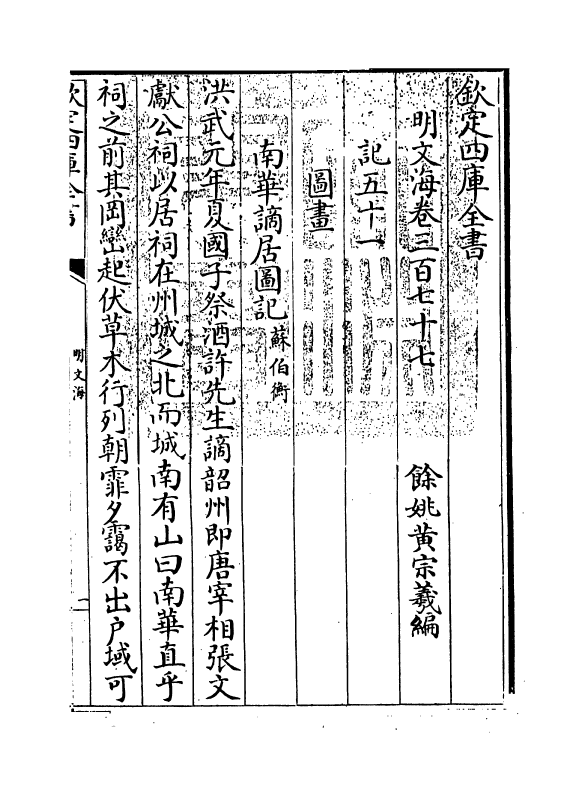 欽定四庫全書
明文海卷三百七十七
餘姚黃宗羲編
記五十一
圖畫
南華謫居圖記蘇伯衡
洪武元年夏國子祭酒許先生謫韶州即唐宰相張文
獻公祠以居祠在州城之北而城南有山曰南華直乎
祠之前其岡巒起伏草木行列朝霏夕靄不出户域可
欽定四庫全書
明文海
一